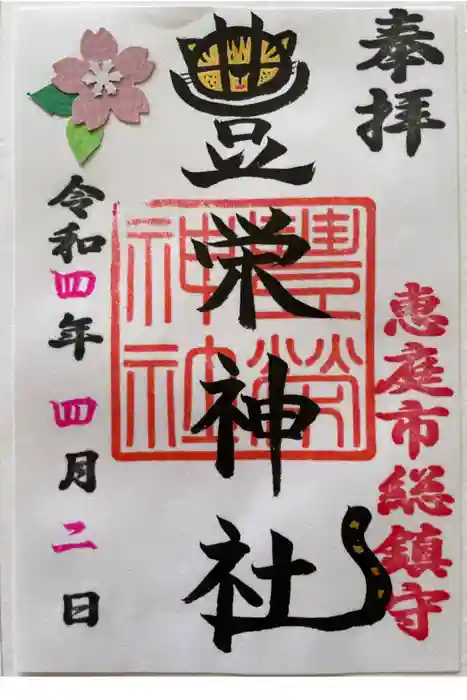 奉拝
恵庭市総鎮守
豊栄神社
豊栄神社
令和四年四月二日